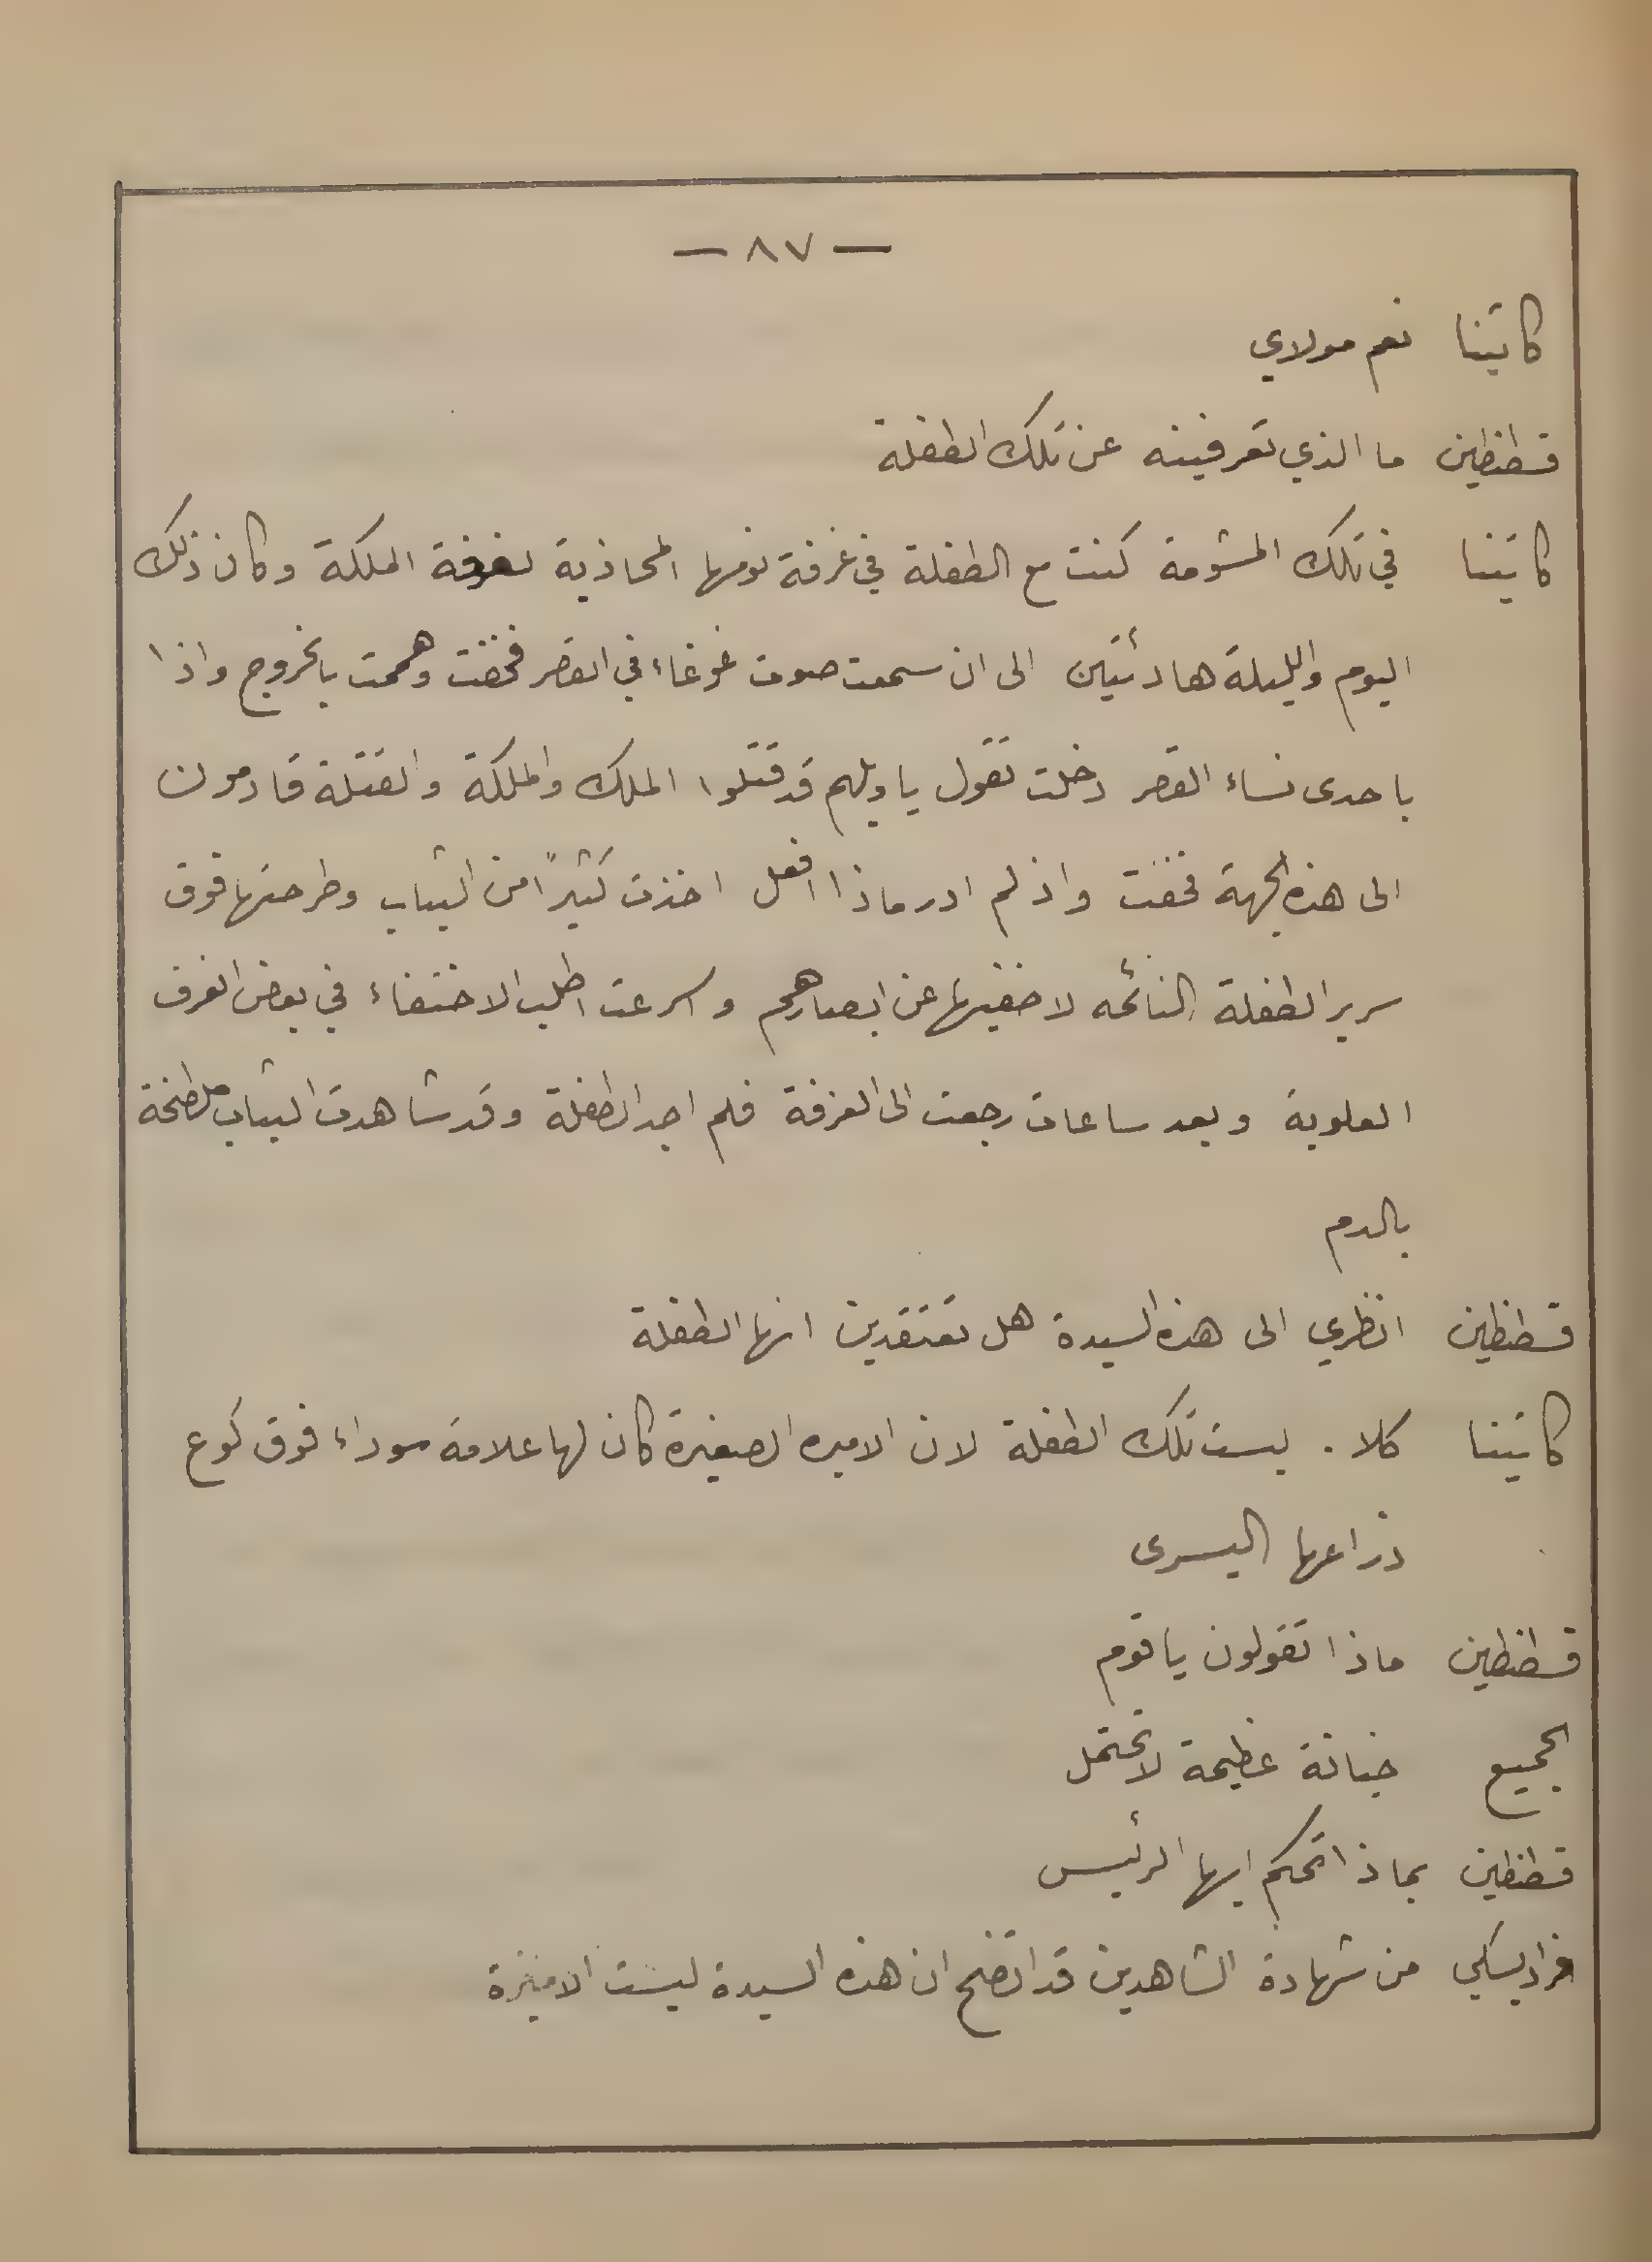 — ٨٧ —
كاتينا نعم مولاي
قسطنطين ما الذي تعرفينه عن تلك الطفلة
كاتينا في تلك المشومة كنت مع الطفلة في غرفة نومها المحاذية لغرفة الملكة وكان ذلك
اليوم والليلة هادئتين الى ان سمعت صوت غوغاء في القصر فخفت وهممت بالخروج واذا
باحدى نساء القصر دخلت تقول ياويلهم قد قتلوا الملك والملكة والقتلة قادمون
الى هذه الجهة فخفت واذ لم ادر ماذا افعل اخذت كثيراً من الثياب وطرحتها فوق
سرير الطفلة النائمه لاخفيها عن ابصارهم واسرعت اطلب الاختفاء في بعض الغرف
العلوية وبعد ساعات رجعت الى الغرفة فلم اجد الطفلة وقد شاهدت الثياب ملطخة
بالدم
قسطنطين انظري الى هذه السيدة هل تعتقدين انها الطفلة
كاتينا كلا . ليست تلك الطفلة لان الاميره الصغيرة كان لها علامة سوداء فوق كوع
ذراعها اليسرى
قسطنطين ماذا تقولون ياقوم
الجميع خيانة عظيمة لا تحتمل
قسطنطين بماذا تحكم ايها الرئيس
من شهادة الشاهدين قد اتضح ان هذه السيدة ليست الاميرة